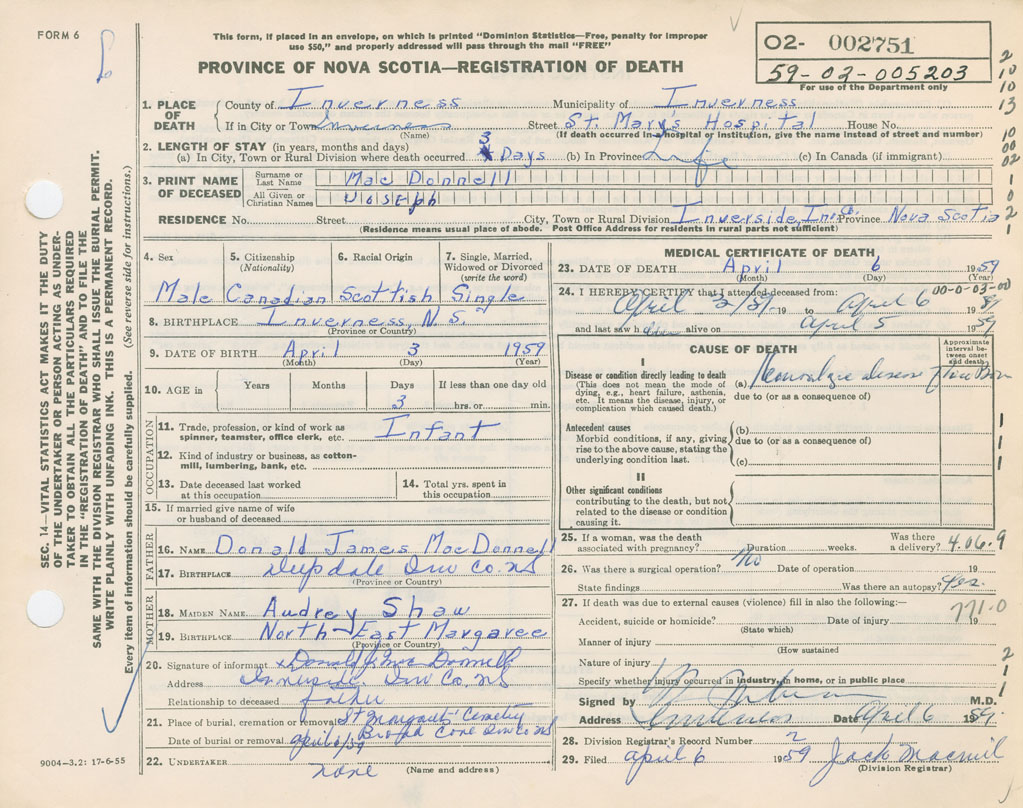 FORM 6
This form, if placed in an envelope, on which is printed "Dominion Statistics—Free, penalty for improper
use $50," and properly addressed will pass through the mail "FREE"
PROVINCE OF NOVA SCOTIA—REGISTRATION OF DEATH
02- 002751
59-02-005203
For use of the Department only
2
10
10
13
1. PLACE OF DEATH County of Inverness Municipality of Inverness
If in City or Town Inverness Street St. Mary's Hospital House No.
(Name) (If death occurred in a hospital or institution, give the name instead of street and number)
10
00
02
2. LENGTH OF STAY (in years, months and days)
(a) In City, Town or Rural Division where death occurred 3 Days (b) In Province Life (c) In Canada (if immigrant)
3. PRINT NAME OF DECEASED
Surname or Last Name MacDonnell
All Given or Christian Names Joseph
1
0
2
1
RESIDENCE No. Street City, Town or Rural Division Inverside, Inv. Co. Province Nova Scotia
(Residence means usual place of abode. Post Office Address for residents in rural parts not sufficient)
4. Sex
5. Citizenship (Nationality)
6. Racial Origin
7. Single, Married, Widowed or Divorced (write the word)
Male Canadian Scottish Single
8. BIRTHPLACE Inverness, N.S.
(Province or Country)
9. DATE OF BIRTH April 3 1959
(Month) (Day) (Year)
10. AGE in Years Months Days If less than one day old
3 hrs. or min.
OCCUPATION
11. Trade, profession, or kind of work as spinner, teamster, office clerk, etc. Infant
12. Kind of industry or business, as cotton-mill, lumbering, bank, etc.
13. Date deceased last worked at this occupation
14. Total yrs. spent in this occupation
15. If married give name of wife or husband of deceased
FATHER
16. NAME Donald James MacDonnell
17. BIRTHPLACE Deepdale Inv Co. NS
(Province or Country)
MOTHER
18. MAIDEN NAME Audrey Shaw
19. BIRTHPLACE North-East Margaree
(Province or Country)
20. Signature of informant x Donald J. Mac Donnell
Address Inverside. Inv Co. NS
Relationship to deceased father
21. Place of burial, cremation or removal St Margaret's Cemetery
Broad Cove Inv Co NS
Date of burial or removal April 6/59
22. UNDERTAKER none
(Name and address)
MEDICAL CERTIFICATE OF DEATH
23. DATE OF DEATH April 6 1959
(Month) (Day) (Year)
24. I HEREBY CERTIFY that I attended deceased from: 00-0-03-00
April 3/59 19 to April 6 1959
and last saw h alive on April 5 1959
CAUSE OF DEATH
Approximate interval between onset and death
I
Disease or condition directly leading to death
(This does not mean the mode of dying, e.g., heart failure, asthenia, etc. It means the disease, injury, or complication which caused death.)
(a) disease of
due to (or as a consequence of)
Antecedent causes
Morbid conditions, if any, giving rise to the above cause, stating the underlying condition last.
(b)
due to (or as a consequence of)
(c)
1
1
1
II
Other significant conditions
contributing to the death, but not related to the disease or condition causing it.
25. If a woman, was the death associated with pregnancy? Duration weeks. Was there a delivery? 4.06.9
26. Was there a surgical operation? No Date of operation 19
State findings Was there an autopsy? Yes.
27. If death was due to external causes (violence) fill in also the following:—
771.0
Accident, suicide or homicide? Date of injury 19
(State which)
Manner of injury
(How sustained
Nature of injury
Specify whether injury occurred in industry, in home, or in public place
2
1
1
Signed by M.D.
Address Inverness Date April 6 1959
28. Division Registrar's Record Number 2
29. Filed April 6 1959 Jack Macneil
(Division Registrar)
SEC. 14—VITAL STATISTICS ACT MAKES IT THE DUTY
OF THE UNDERTAKER OR PERSON ACTING AS UNDER-
TAKER TO OBTAIN ALL THE PARTICULARS REQUIRED
IN THE "REGISTRATION OF DEATH" AND TO FILE THE
SAME WITH THE DIVISION REGISTRAR WHO SHALL ISSUE THE BURIAL PERMIT.
WRITE PLAINLY WITH UNFADING INK. THIS IS A PERMANENT RECORD.
Every item of information should be carefully supplied. (See reverse side for instructions.)
9004-3.2: 17-6-55